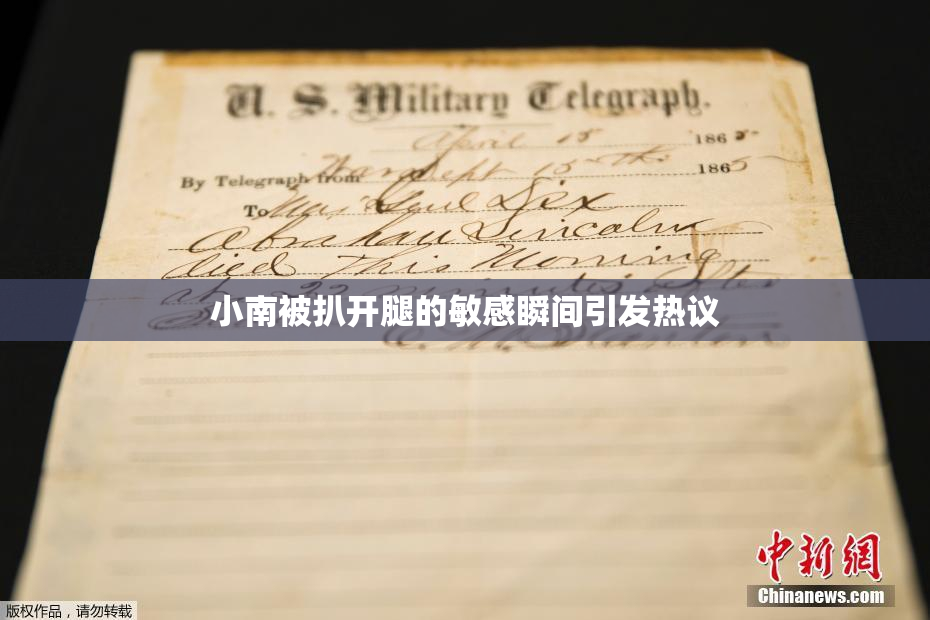 U. S. Military Telegraph.
April 15 1865
By Telegraph from War Dept 15th 1865
To Maj Genl Dix
Abraham Lincoln
died This Morning
at 22 minutes after
小南被扒开腿的敏感瞬间引发热议
E. M. Stanton
中新網
Chinanews.com
版权作品，请勿转载